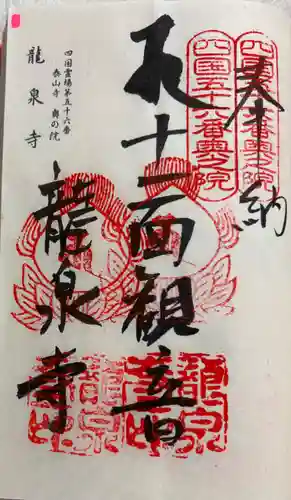 奉納
四國五十六番奥之院
四國五十六番奥之院
十一面観音
龍泉寺
四国霊場第五十六番
泰山寺 奥の院
龍泉寺
龍泉
龍泉